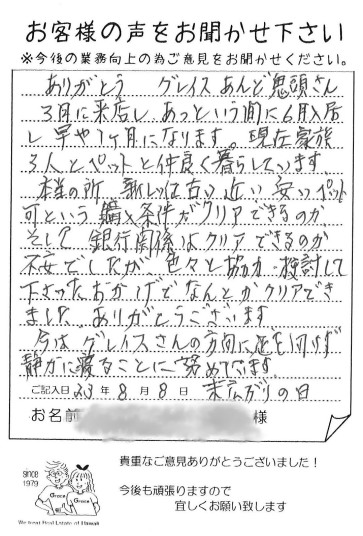 お客様の声をお聞かせ下さい
※今後の業務向上の為ご意見をお聞かせください。
ありがとう グレイスあんど鬼頭さん
3月に来店し あっという間に6月入居
し 早や1ヶ月になります。現在家族
3人とペットと仲良く暮らしています
本当の所 新しいは古い 近い 安い ペット
可という 購入条件がクリアできるのか
そして 銀行関係はクリアできるのか
不安でしたが 色々と協力・検討して
下さったおかげでなんとかクリアでき
ました ありがとうございます
今は グレイスさんの方向に足を向けず
静かに寝ることに努めてます
ご記入日 23年 8月 8日 末広がりの日
お名前 様
since 1979
Grace
Grace
We treat Real Estate of Hawaii
貴重なご意見ありがとうございました！
今後も頑張りますので
宜しくお願い致します